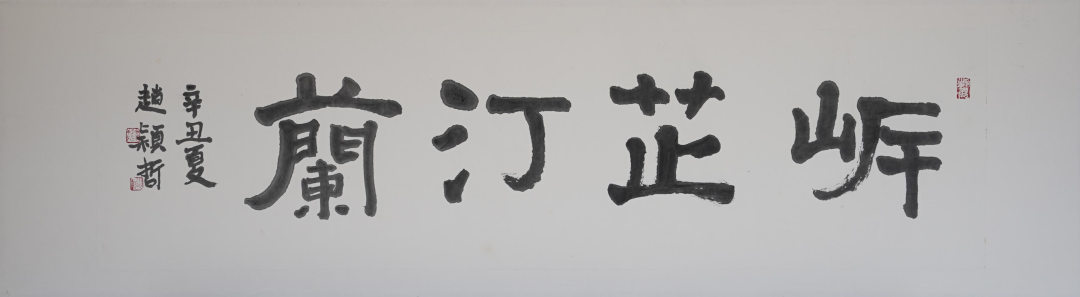 岸芷汀蘭
辛丑夏
趙穎哲